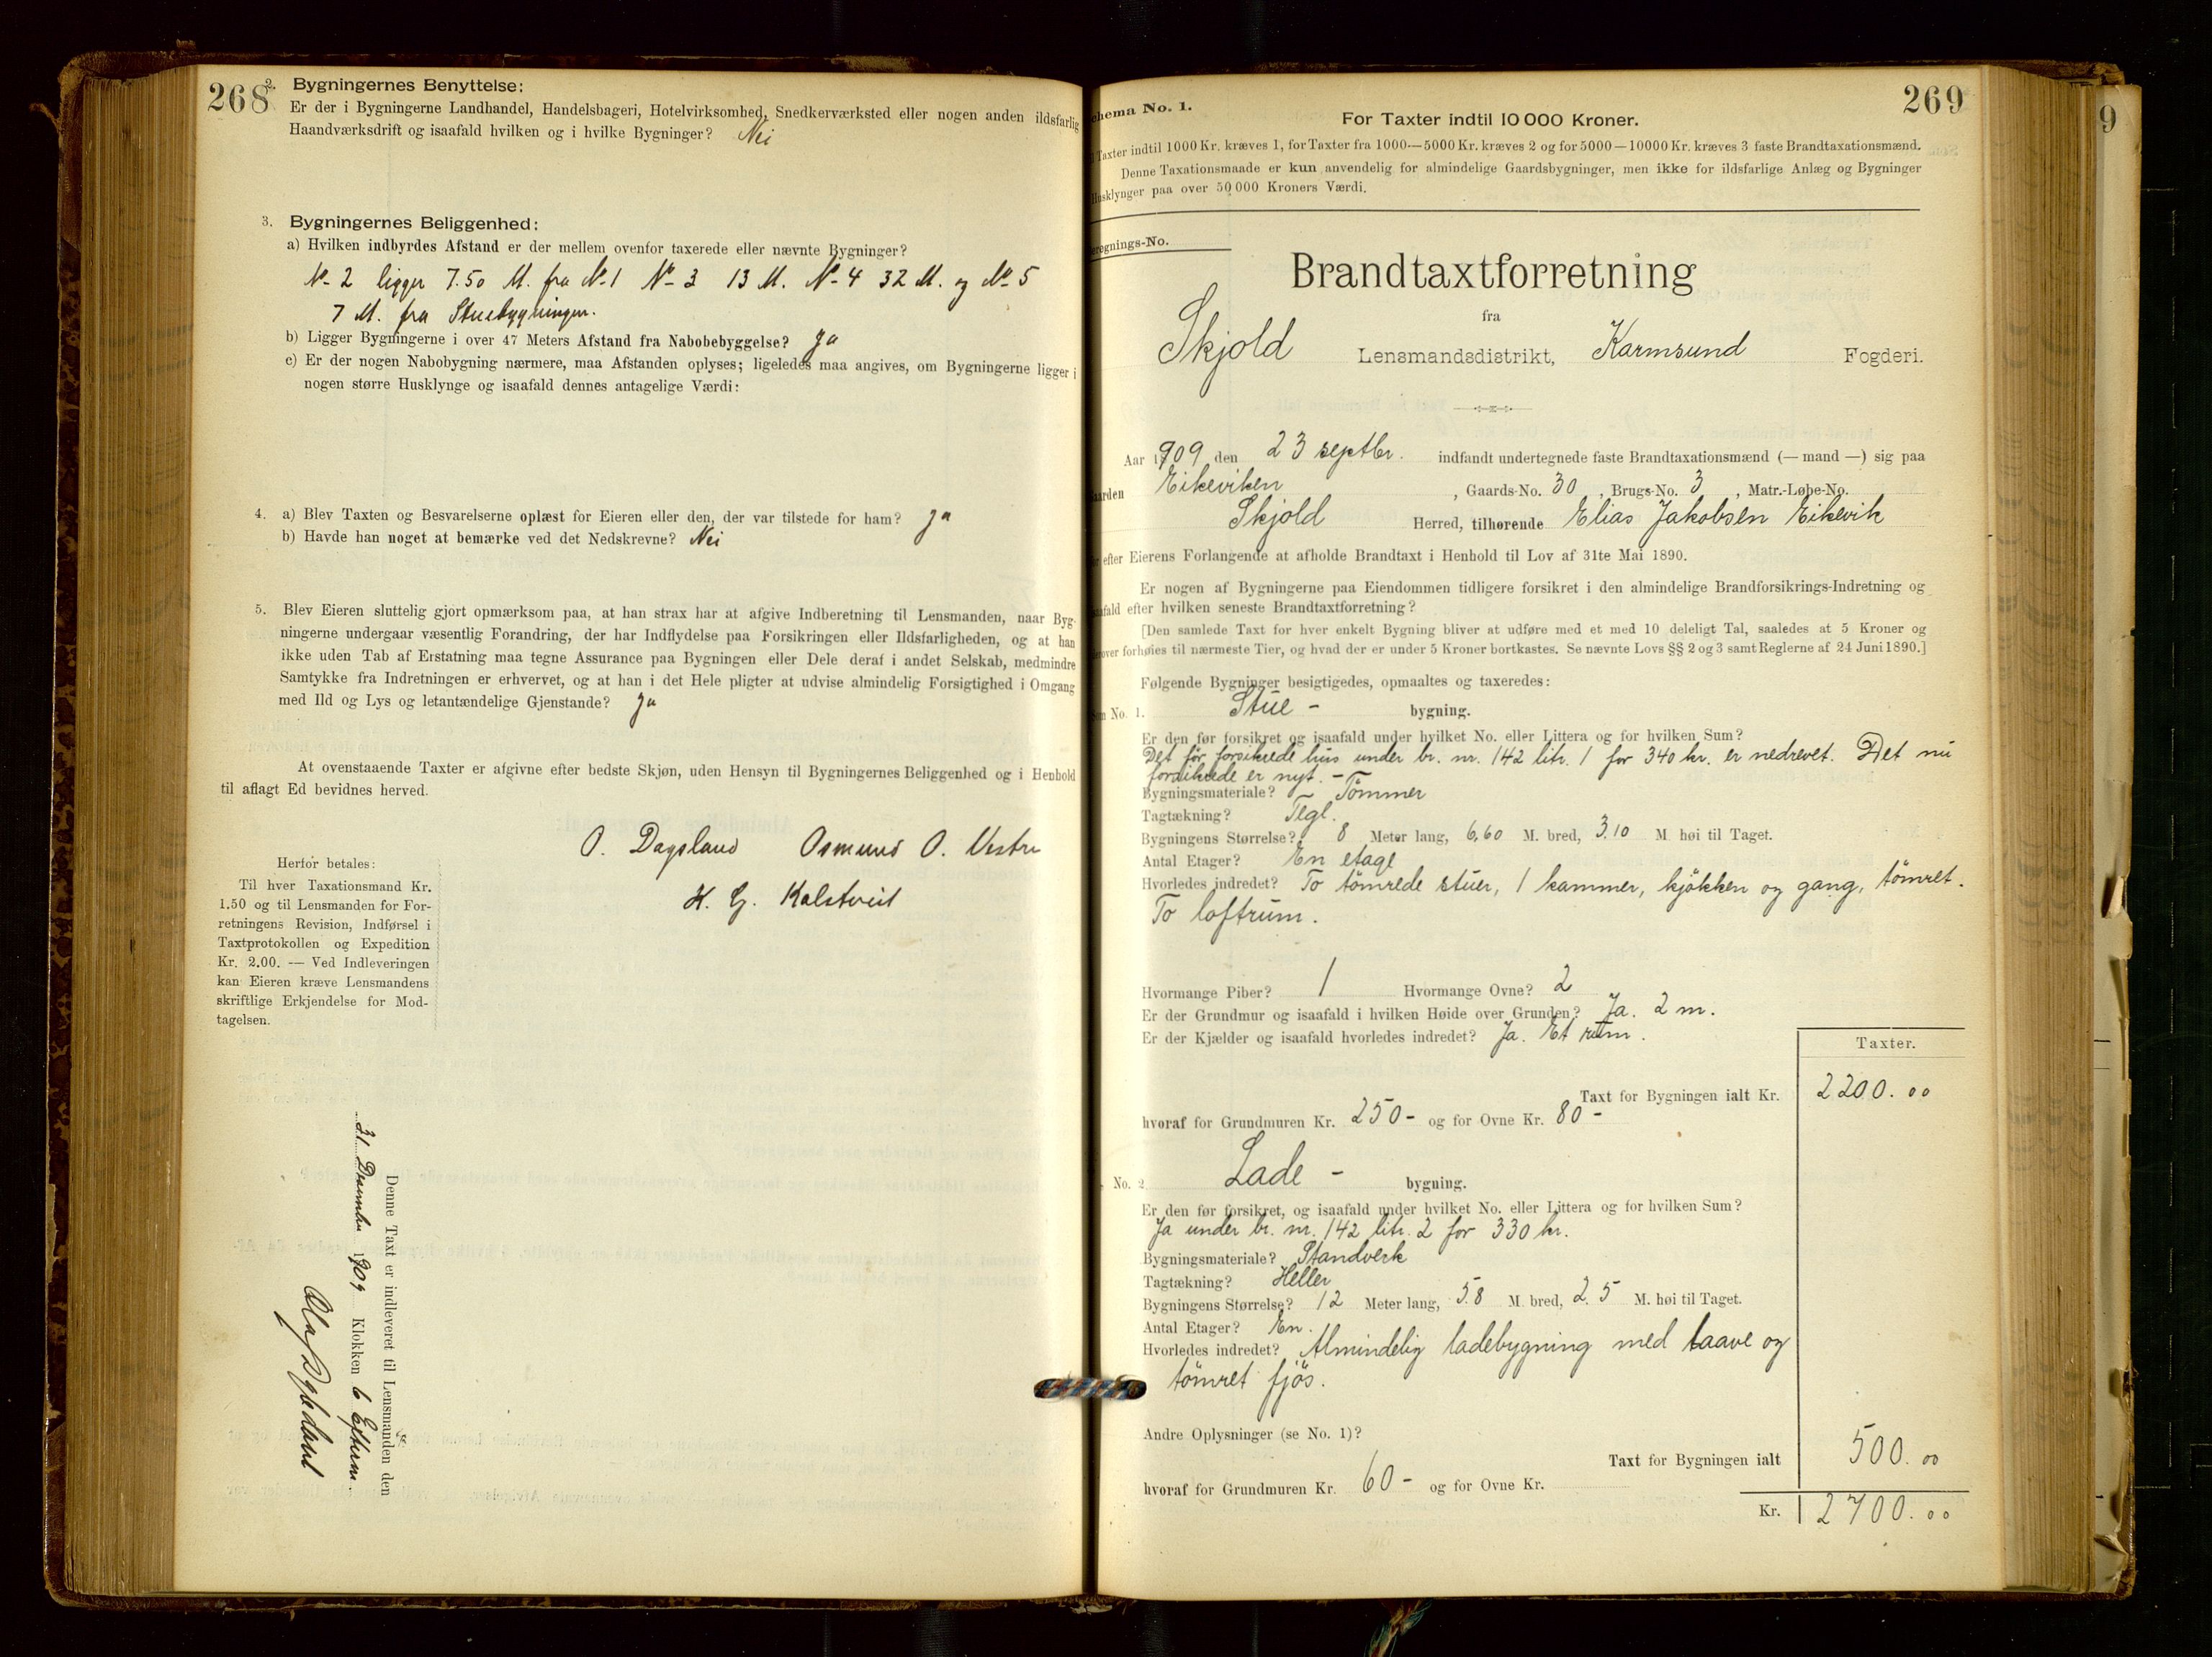 268
2. Bygningernes Benyttelse:
Er der i Bygningerne Landhandel, Handelsbageri, Hotelvirksomhed, Snedkerværksted eller nogen anden ildsfarlig
Haandværksdrift og isaafald hvilken og i hvilke Bygninger? Nei
3. Bygningernes Beliggenhed:
a) Hvilken indbyrdes Afstand er der mellem ovenfor taxerede eller nævnte Bygninger?
No 2 ligger 7.50 M. fra No 1 No 3 13 M. No 4 32 M. og No 5
7 M. fra Stuebygningen.
b) Ligger Bygningerne i over 47 Meters Afstand fra Nabobebyggelse? Ja
c) Er der nogen Nabobygning nærmere, maa Afstanden oplyses; ligeledes maa angives, om Bygningerne ligger i
nogen større Husklynge og isaafald dennes antagelige Værdi:
4. a) Blev Taxten og Besvarelserne oplæst for Eieren eller den, der var tilstede for ham? Ja
b) Havde han noget at bemærke ved det Nedskrevne? Nei
5. Blev Eieren sluttelig gjort opmærksom paa, at han strax har at afgive Indberetning til Lensmanden, naar Byg-
ningerne undergaar væsentlig Forandring, der har Indflydelse paa Forsikringen eller Ildsfarligheden, og at han
ikke uden Tab af Erstatning maa tegne Assurance paa Bygningen eller Dele deraf i andet Selskab, medmindre
Samtykke fra Indretningen er erhvervet, og at han i det Hele pligter at udvise almindelig Forsigtighed i Omgang
med Ild og Lys og letantændelige Gjenstande? Ja
At ovenstaaende Taxter er afgivne efter bedste Skjøn, uden Hensyn til Bygningernes Beliggenhed og i Henhold
til aflagt Ed bevidnes herved.
O. Dagsland Osmund O. Vestre
K. G. Kalstveit
Herfor betales:
Til hver Taxationsmand Kr.
1.50 og til Lensmanden for For-
retningens Revision, Indførsel i
Taxtprotokollen og Expedition
Kr. 2.00. — Ved Indleveringen
kan Eieren kræve Lensmandens
skriftlige Erkjendelse for Mod-
tagelsen.
Denne Taxt er indleveret til Lensmanden den
31 December 1909 Klokken 6 Efterm.
269
9
Schema No. 1.
For Taxter indtil 10 000 Kroner.
Taxter indtil 1000 Kr. kræves 1, for Taxter fra 1000—5000 Kr. kræves 2 og for 5000—10000 Kr. kræves 3 faste Brandtaxationsmænd.
Denne Taxationsmaade er kun anvendelig for almindelige Gaardsbygninger, men ikke for ildsfarlige Anlæg og Bygninger
Husklynger paa over 50 000 Kroners Værdi.
Beregnings-No.
Brandtaxtforretning
fra
Skjold Lensmandsdistrikt, Karmsund Fogderi.
Aar 1909 den 23 septbr. indfandt undertegnede faste Brandtaxationsmænd (— mand —) sig paa
Gaarden Eikeviken, Gaards-No. 30, Brugs-No. 3, Matr.-Løbe-No.
Skjold Herred, tilhørende Elias Jakobsen Eikevik
for efter Eierens Forlangende at afholde Brandtaxt i Henhold til Lov af 31te Mai 1890.
Er nogen af Bygningerne paa Eiendommen tidligere forsikret i den almindelige Brandforsikrings-Indretning og
isaafald efter hvilken seneste Brandtaxtforretning?
[Den samlede Taxt for hver enkelt Bygning bliver at udføre med et med 10 deleligt Tal, saaledes at 5 Kroner og
derover forhøies til nærmeste Tier, og hvad der er under 5 Kroner bortkastes. Se nævnte Lovs §§ 2 og 3 samt Reglerne af 24 Juni 1890.]
Følgende Bygninger besigtigedes, opmaaltes og taxeredes:
Som No. 1. Stue - bygning.
Er den før forsikret og isaafald under hvilket No. eller Littera og for hvilken Sum?
Det før forsikrede hus under br. nr. 142 litr. 1 for 340 kr. er nedrevet. Det nu
forsikrede er nyt. -
Bygningsmateriale? - Tømmer
Tagtækning? Tegl.
Bygningens Størrelse? 8 Meter lang, 6,60 M. bred, 3.10 M. høi til Taget.
Antal Etager? En etage
Hvorledes indredet? To tømrede stuer, 1 kammer, kjøkken og gang, tømret.
To loftrum.
Hvormange Piber? 1 Hvormange Ovne? 2
Er der Grundmur og isaafald i hvilken Høide over Grunden? Ja. 2 m.
Er der Kjælder og isaafald hvorledes indredet? Ja. Et rum.
Taxter.
Taxt for Bygningen ialt Kr. 2200.00
hvoraf for Grundmuren Kr. 250- og for Ovne Kr. 80-
No. 2 Lade - bygning.
Er den før forsikret, og isaafald under hvilket No. eller Littera og for hvilken Sum?
Ja under br. nr. 142 litr. 2 for 330 kr.
Bygningsmateriale? Standverk
Tagtækning? Heller
Bygningens Størrelse? 12 Meter lang, 5.8 M. bred, 2.5 M. høi til Taget.
Antal Etager? En.
Hvorledes indredet? Almindelig ladebygning med laave og
tømret fjøs.
Andre Oplysninger (se No. 1)?
Taxt for Bygningen ialt 500.00
hvoraf for Grundmuren Kr. 60- og for Ovne Kr.
Kr. 2700.00